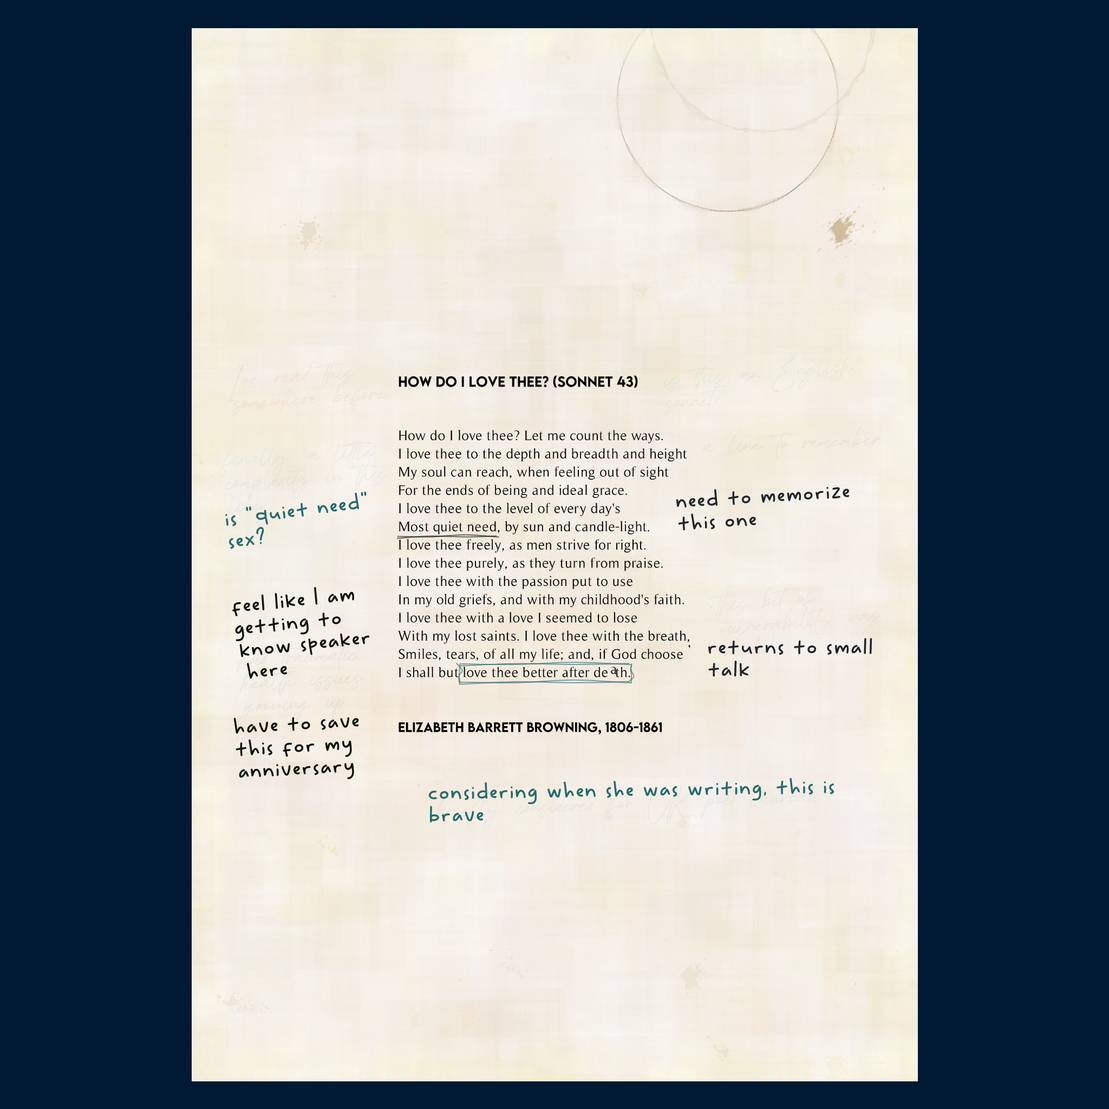 I've read this
somewhere before
is this an English
sonnet
HOW DO I LOVE THEE? (SONNET 43)
How do I love thee? Let me count the ways.
I love thee to the depth and breadth and height
My soul can reach, when feeling out of sight
For the ends of being and ideal grace.
I love thee to the level of every day's
Most quiet need, by sun and candle-light.
I love thee freely, as men strive for right.
I love thee purely, as they turn from praise.
I love thee with the passion put to use
In my old griefs, and with my childhood's faith.
I love thee with a love I seemed to lose
With my lost saints. I love thee with the breath,
Smiles, tears, of all my life; and, if God choose
I shall but love thee better after death.
ELIZABETH BARRETT BROWNING, 1806-1861
finally, a little
complexity in this
a line to remember
is "quiet need"
sex?
need to memorize
this one
feel like I am
getting to
know speaker
here
health issues
growing up
returns to small
talk
have to save
this for my
anniversary
considering when she was writing, this is
brave